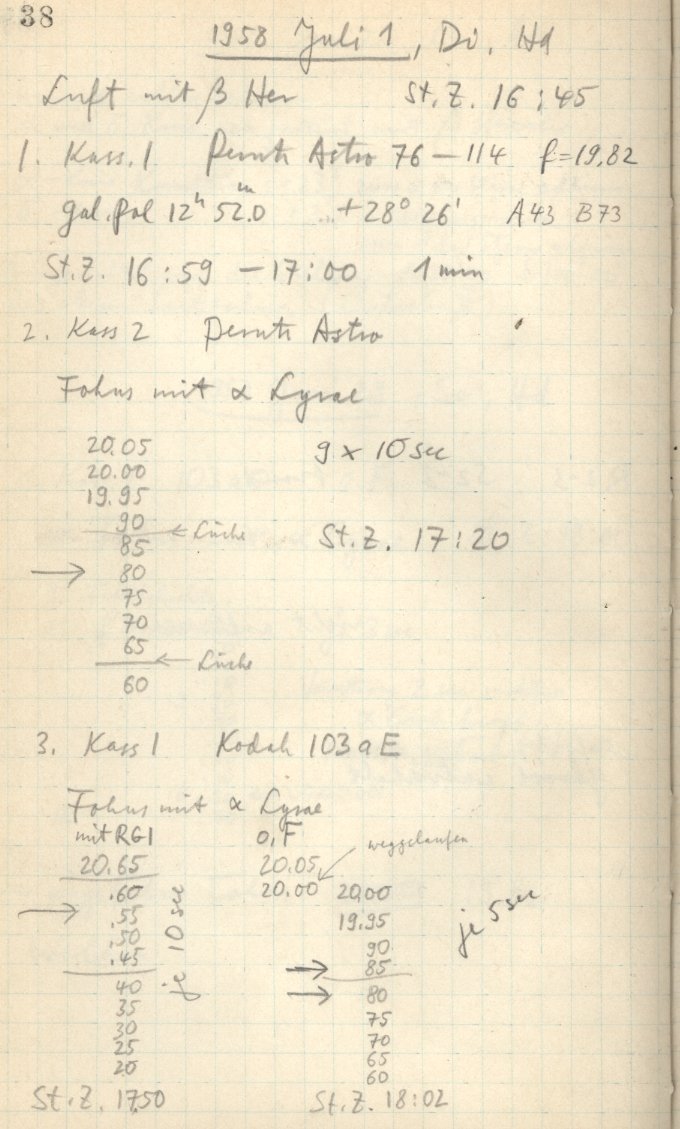 38
1958 Juli 1, Di. Hd
Luft mit β Her St.Z. 16:45
1. Kass. 1 Perutz Astro 76 – 114 f=19,82
gal. Pol 12ʰ 52.0ᵐ +28° 26' A43 B73
St.Z. 16:59 – 17:00 1 min
2. Kass 2 Perutz Astro
Fokus mit α Lyrae
20.05 9 x 10 sec
20.00
19.95
90 ← Lücke
85 St.Z. 17:20
→ 80
75
70
65
← Lücke
60
3. Kass 1 Kodak 103 a E
Fokus mit α Lyrae
mit RG1
20.65
.60
→ .55
.50
.45
40
35
30
25
20
je 10 sec
St.Z. 17.50
o, F
20.05 weggelaufen
20.00
20.00
19.95
90
→ 85
→ 80
75
70
65
60
je 5 sec
St.Z. 18:02